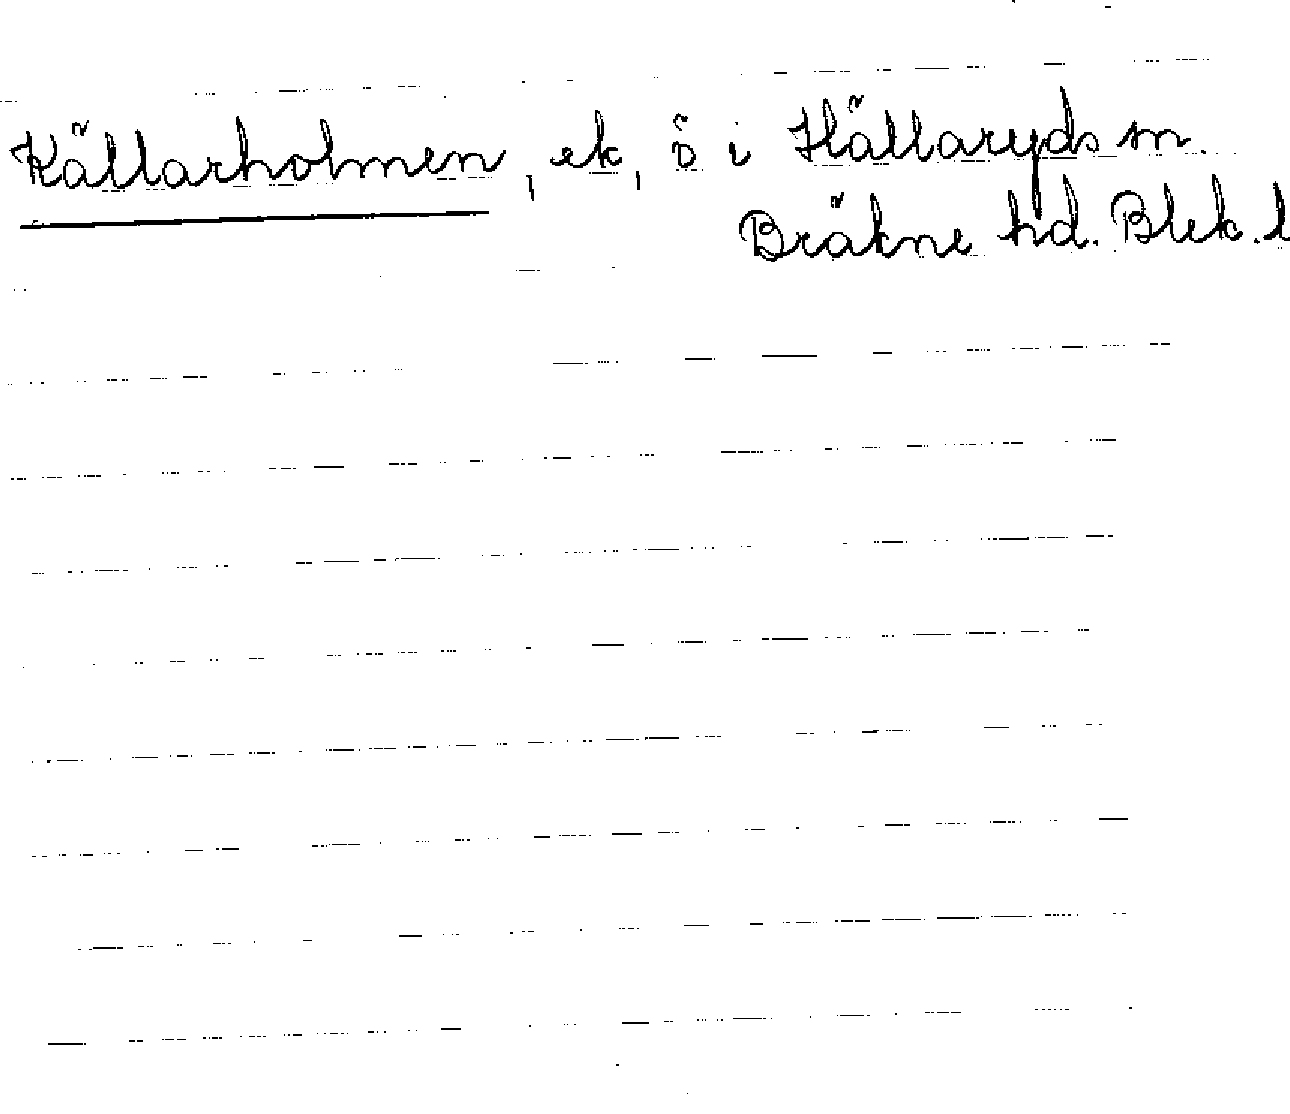 Källarholmen, ek, ö i Hällaryds sn.
Bräkne hd. Blek. l